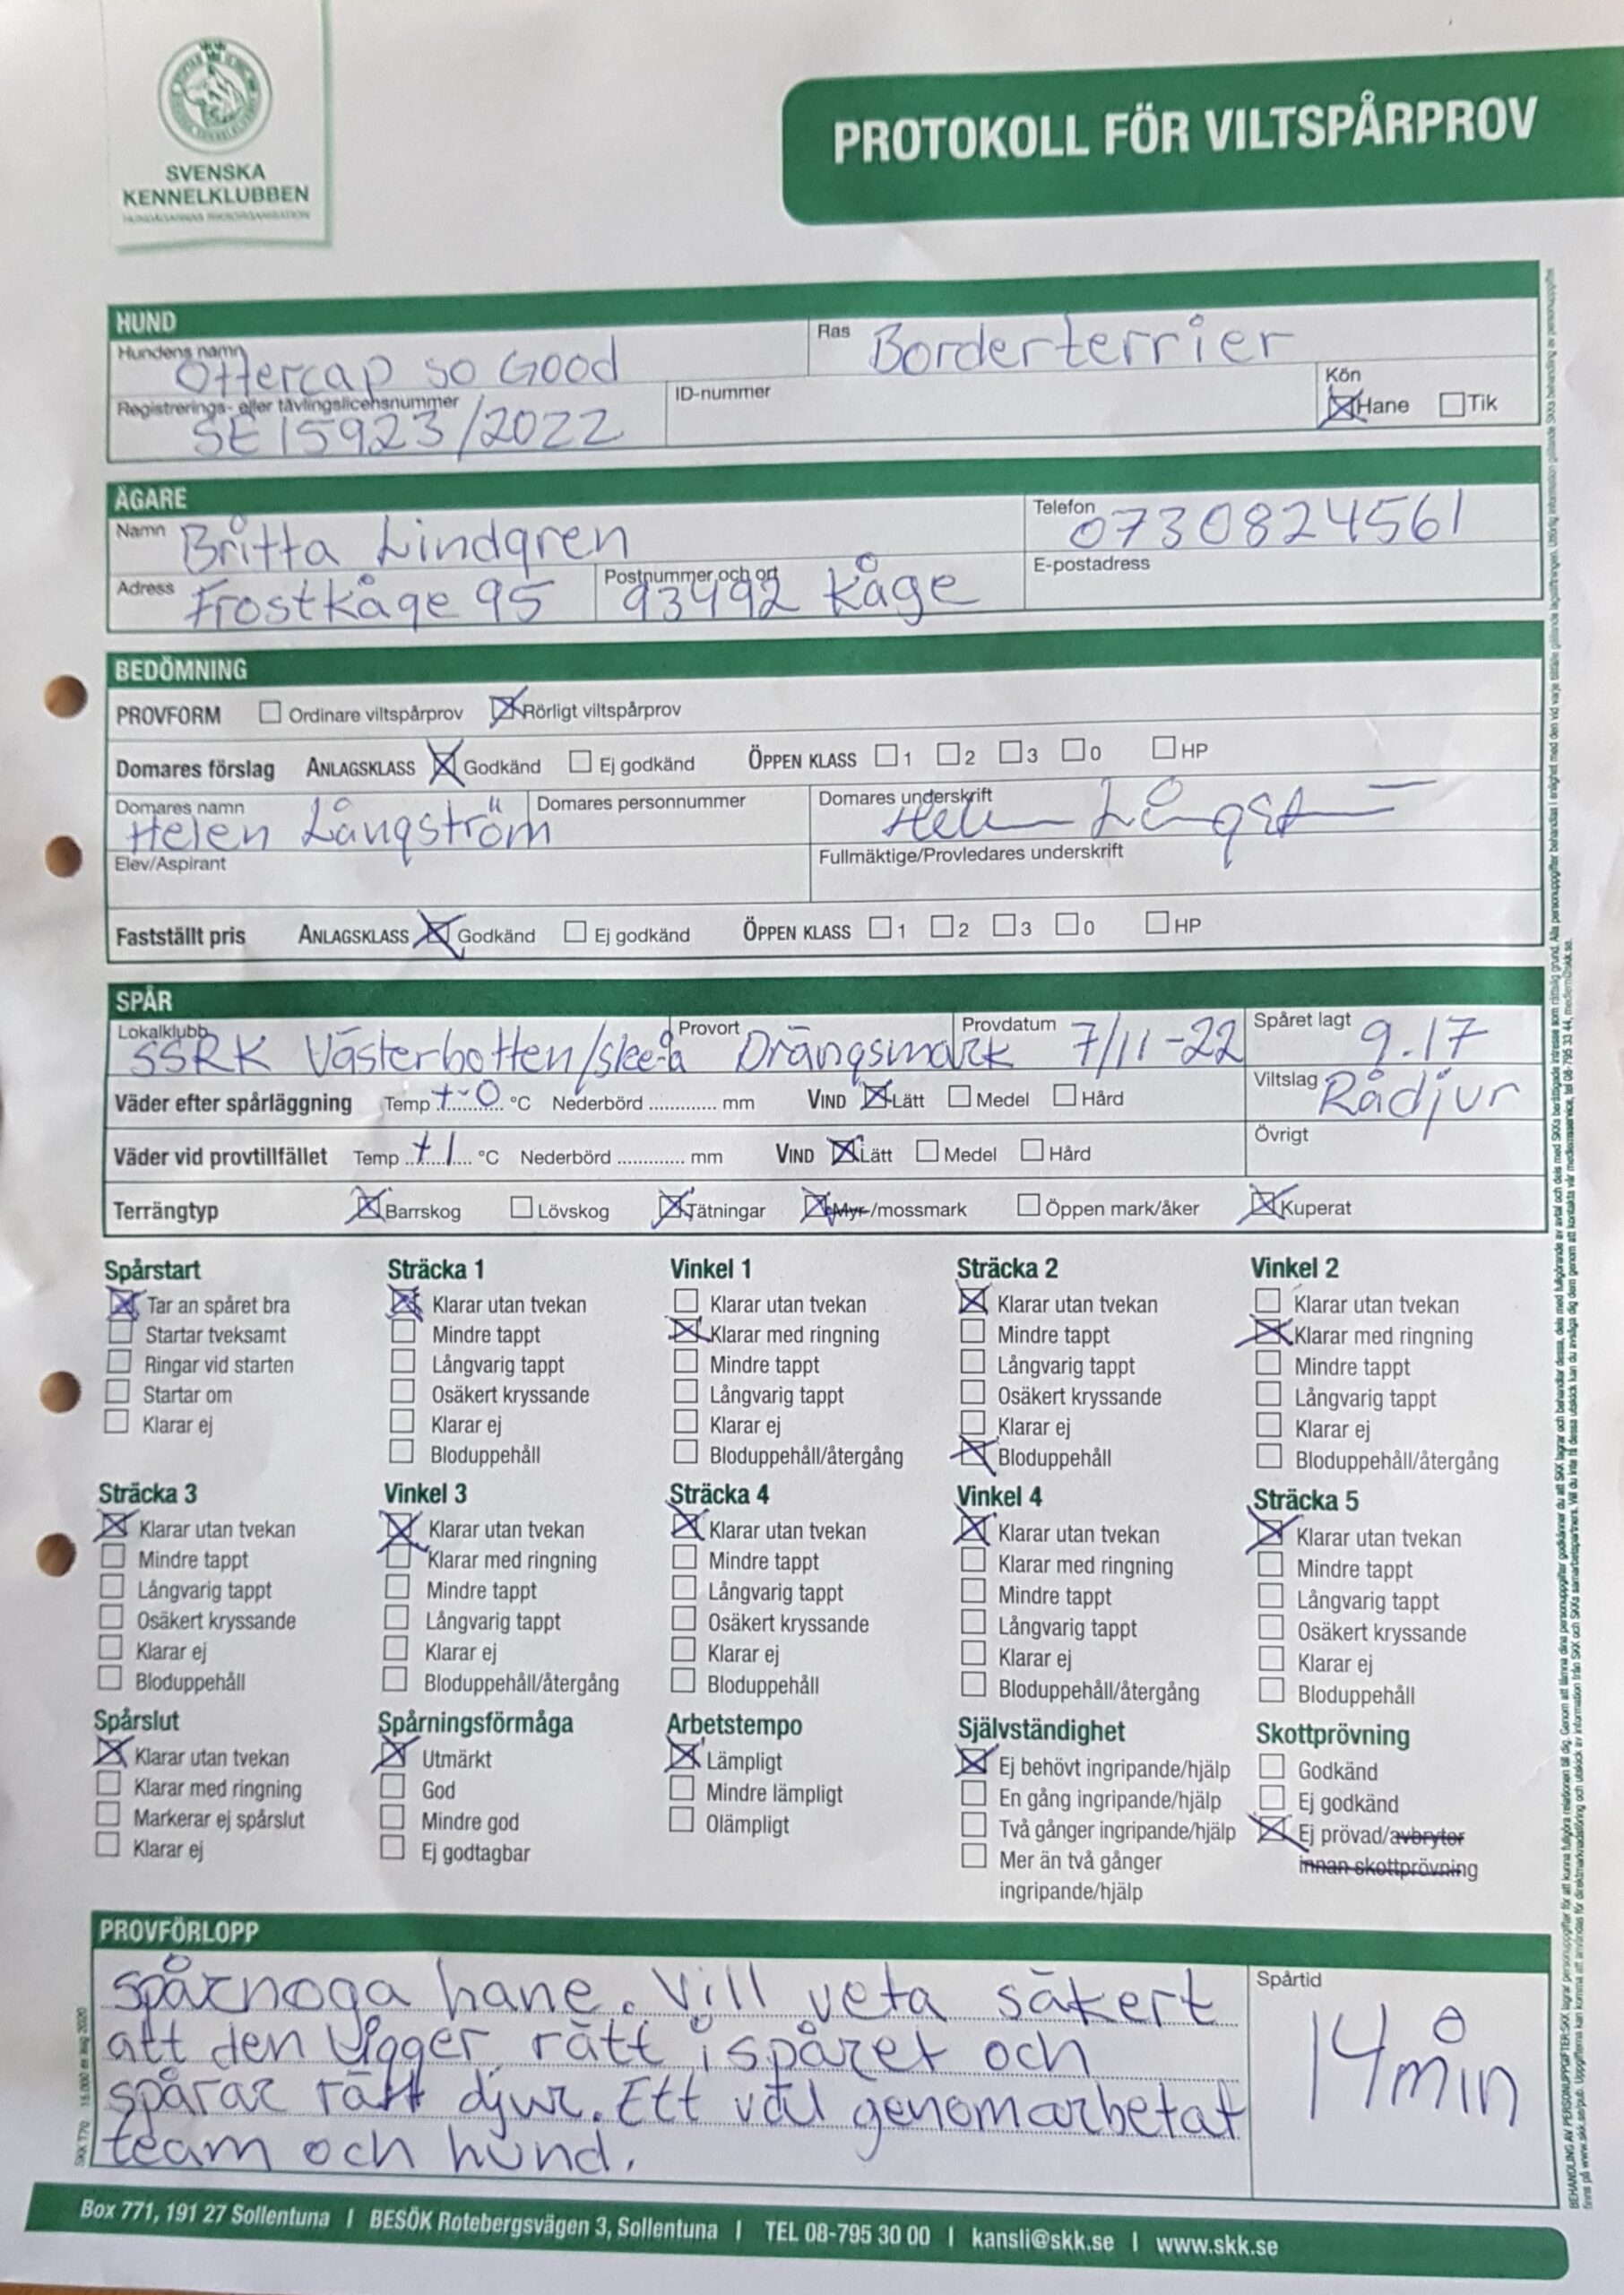 SVENSKA
KENNELKLUBBEN
HUNDÄGARNAS RIKSORGANISATION
PROTOKOLL FÖR VILTSPÅRPROV
HUND
Hundens namn Ottercap so Good Ras Borderterrier
Registrerings- eller tävlingslicensnummer SE15923/2022 ID-nummer Kön Hane Tik
ÄGARE
Namn Britta Lindgren Telefon 0730824561
Adress Frostkåge 95 Postnummer och ort 93492 Kåge E-postadress
BEDÖMNING
PROVFORM Ordinare viltspårprov Rörligt viltspårprov
Domares förslag ANLAGSKLASS Godkänd Ej godkänd ÖPPEN KLASS 1 2 3 0 HP
Domares namn Helen Långström Domares personnummer Domares underskrift
Elev/Aspirant Fullmäktige/Provledares underskrift
Fastställt pris ANLAGSKLASS Godkänd Ej godkänd ÖPPEN KLASS 1 2 3 0 HP
SPÅR
Lokalklubb SSRK Västerbotten/Ske-å Provort Drängsmark Provdatum 7/11-22 Spåret lagt 9.17
Väder efter spårläggning Temp +-0 °C Nederbörd ............. mm VIND Lätt Medel Hård Viltslag Rådjur
Väder vid provtillfället Temp +1 °C Nederbörd ............. mm VIND Lätt Medel Hård Övrigt
Terrängtyp Barrskog Lövskog Tätningar Myr-/mossmark Öppen mark/åker Kuperat
Spårstart Sträcka 1 Vinkel 1 Sträcka 2 Vinkel 2
Tar an spåret bra Klarar utan tvekan Klarar utan tvekan Klarar utan tvekan Klarar utan tvekan
Startar tveksamt Mindre tappt Klarar med ringning Mindre tappt Klarar med ringning
Ringar vid starten Långvarig tappt Mindre tappt Långvarig tappt Mindre tappt
Startar om Osäkert kryssande Långvarig tappt Osäkert kryssande Långvarig tappt
Klarar ej Klarar ej Klarar ej Klarar ej Klarar ej
Bloduppehåll Bloduppehåll/återgång Bloduppehåll Bloduppehåll/återgång
Sträcka 3 Vinkel 3 Sträcka 4 Vinkel 4 Sträcka 5
Klarar utan tvekan Klarar utan tvekan Klarar utan tvekan Klarar utan tvekan Klarar utan tvekan
Mindre tappt Klarar med ringning Mindre tappt Klarar med ringning Mindre tappt
Långvarig tappt Mindre tappt Långvarig tappt Mindre tappt Långvarig tappt
Osäkert kryssande Långvarig tappt Osäkert kryssande Långvarig tappt Osäkert kryssande
Klarar ej Klarar ej Klarar ej Klarar ej Klarar ej
Bloduppehåll Bloduppehåll/återgång Bloduppehåll Bloduppehåll/återgång Bloduppehåll
Spårslut Spårningsförmåga Arbetstempo Självständighet Skottprövning
Klarar utan tvekan Utmärkt Lämpligt Ej behövt ingripande/hjälp Godkänd
Klarar med ringning God Mindre lämpligt En gång ingripande/hjälp Ej godkänd
Markerar ej spårslut Mindre god Olämpligt Två gånger ingripande/hjälp Ej prövad/avbryter
Klarar ej Ej godtagbar Mer än två gånger innan skottprövning
ingripande/hjälp
PROVFÖRLOPP
Spårnoga hane. Vill veta säkert Spårtid
att den ligger rätt i spåret och 14 min
spårar rätt djur. Ett väl genomarbetat
team och hund.
SKK T70 15.000 ex aug 2020
Box 771, 191 27 Sollentuna | BESÖK Rotebergsvägen 3, Sollentuna | TEL 08-795 30 00 | kansli@skk.se | www.skk.se